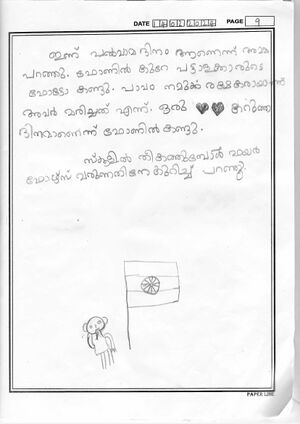 DATE 14 02 2024 PAGE 9
ഇന്ന് പുൽവാമ ദിനം ആണെന്ന് അമ്മ
പറഞ്ഞു. ഫോണിൽ കുറേ പട്ടാളക്കാരുടെ
ഫോട്ടോ കണ്ടു. പാവം നമുക്ക്
അവർ മരിച്ചത് എന്ന്. ഒരു 🖤🖤 കറുത്ത
ദിനമാണെന്ന് ഫോണിൽ കണ്ടു.
സ്കൂളിൽ വെയർ
ഫോഴ്സ് വരുന്നതിനേ കുറിച്ച് പറഞ്ഞു.
PAPER LINE